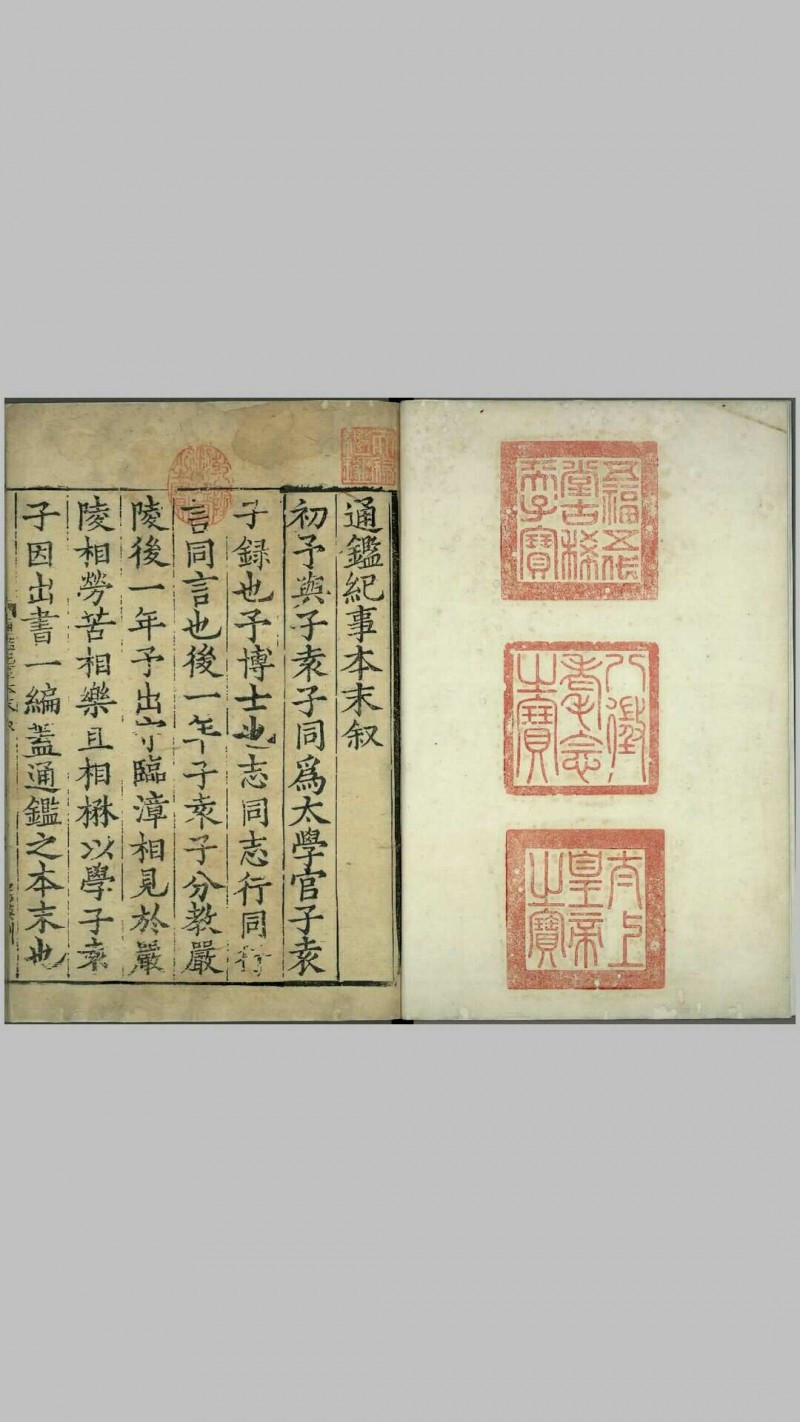 五福五代
堂古稀
天子寶
八徵
耄念
之寶
太上
皇帝
之寶
通鑑紀事本末叙
初予與子袁子同爲太學官子袁
子録也予博士也志同志行同行
言同言也後一年子袁子分教嚴
陵後一年予出守臨漳相見於嚴
陵相勞苦相樂且相楙以學子袁
子因出書一編蓋通鑑之本末也